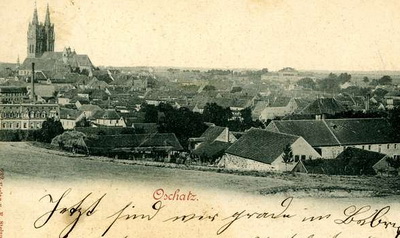 Oschatz.
Jetzt sind wir grade im